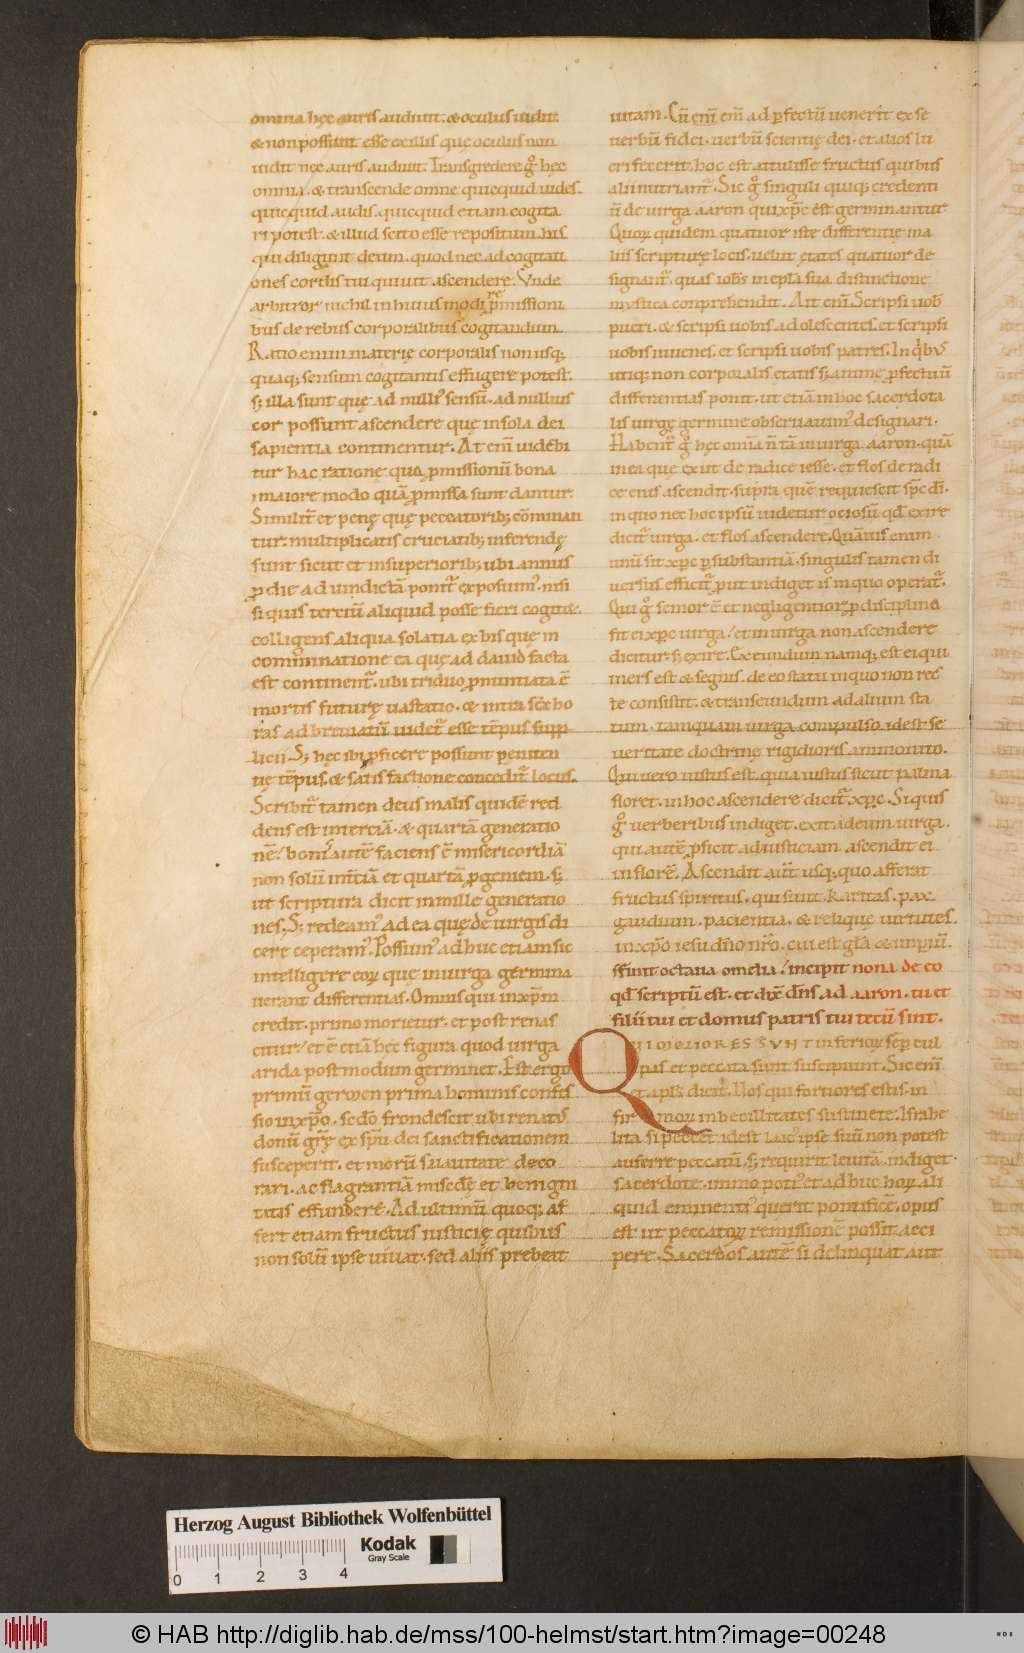 omnia hęc auris audiuit. & oculus uidit.
& non possunt esse ex illis quę oculus non
uidit nec auris audiuit. Transgredere g̊ hęc
omnia. & transcende omne quicquid uides.
quicquid audis. quicquid etiam cogita
ri potest. & illud scito esse repositum his
qui diligunt deum. quod nec ad cogitati
ones cordis tui quiuit ascendere. Vnde
arbitror nichil in huius modi ꝓmissioni
bus de rebus corporalibus cogitandum.
Ratio enim materię corporalis non usq;
quaq; sensum cogitantis effugere potest.
s; illa sunt quę ad nulli᾽ sensū. ad nullius
cor possunt ascendere quę in sola dei
sapientia continentur. At em̄ uidebi
tur hac ratione quo ꝓmissionū bona
in maiore modo quā ꝓmissa sunt dantur.
Similit̄ et penę quę peccatorib; cōminan
tur. multiplicatis cruciatib; inferendę
sunt sicut et in superiorib; ubi annus
ꝓ die ad uindictā ponit᷑ exposuim᾽. nisi
si quis terciū aliquid posse fieri cogit&.
colligens aliqua solatia ex his quę in
comminatione ea quę ad dauid facta
est continent᷑. ubi triduo ꝓnuntiata ē
mortis futurę uastatio. & intra sex ho
ras ad breuiatū uidet᷑ esse tēpus supp
licii. S; hęc ibi ꝓficere possunt peniten
tię tēpus. & satis factione concedit᷑ locus.
Scribit᷑ tamen deus malis quidē red
dens est in terciā. & quartā generatio
nē. bonis autē faciens ē misericordiā
non solū in t̄tiā et quartā ꝓgeniem. s;
ut scriptura dicit in mille generatio
nes. S; redeam᾽ ad ea quę de uirgis di
cere ceperam᾽. Possum᾽ adhuc etiam sic
intelligere eoꝝ quę in uirga germina
uerant differentias. Omnis qui in xp̄m
credit. primo morietur. et post renas
citur. et ē etiā hęc figura quod uirga
arida post modum germinet. Est ergo
primū germen prima hominis confes
sio in xp̄o. sed̄o frondescit ubi renatus
donū gr̄ę ex sp̄u dei sanctificationem
susceperit. et morū suauitate deco
rari. ac flagrantiā mised̄ę et benigni
tatis effunderē. Ad ultimū quoq; af
fert etiam fructus iusticię quibus
non solū ipse uiuat. sed aliis prebeat
uitam. Cū em̄ ad ꝑfectū uenerit ex se
uerbū fidei. uerbū scientię dei. et alios lu
cri fecerit. hoc est attulisse fructus quibus
alii nutriant᷑. Sic g̊ singuli quiq; credenti
ū de uirga aaron qui xp̄c est germinantur
Quoꝝ quidem quatuor iste differentię ma
liis scripturę locis. uelut ętatis quatuor de
signant᷑. quas iohs̄ in epl̄a sua distinctione
mystica conprehendit. Ait em̄. Scripsi uob̄
pueri. & scripsi uobis adolescentes. et scripsi
uobis iuuenes. et scripsi uobis patres. In q̇bus
utiq; non corporalis etatis s; animę ꝓfectuū
differentias ponit. ut etiā in hoc sacerdota
lis uirgę germine obseruauim᾽ designari.
Habent᷑ g̊ hęc om̄ia n̄ tā in uirga aaron. quā
in ea que exiit de radice iesse. et flos de radi
ce eius ascendit. supra quē requiescit sp̄c dī.
in quo nec hoc ipsū uidetur ociosū qd̄ exire
dicit᷑ uirga. et flos ascendere. Quāuis enim
unū sit xp̄c ꝑ substantiā. singulis tamen di
uersus efficit᷑ ꝓut indiget is in quo operat᷑.
Qui g̊ senior ē et negligentior. ꝑ disciplina
fit ei xp̄c uirga. et in uirga non ascendere
dicitur. s; exire. Exeundum namq; est ei qui
iners est & segnis. de eo statu in quo non rec
te consistit. & transeundum ad alium sta
tum. tamquam uirga compulso. idest se
ueritate doctrinę rigidioris ammonito.
Qui uero iustus est. quia iustus sicut palma
floret. in hoc ascendere dicit᷑ xp̄c. Si quis
g̊ uerberibus indiget. exit ad eum uirga.
qui autē ꝓficit ad iusticiam. ascendit ei
in florē. Ascendit aut̄ usq; quo afferat
fructus spiritus. qui sunt karitas. pax.
gaudium. pacientia. & relique uirtutes.
in xp̄o iesu dn̄o nr̄o. cui est gl̄a & imꝑiū.
Finit octaua omelia. incipit nona de eo
qd̄ scriptū est. et dix̄ dn̄s ad aaron. tu et
filii tui et domus patris tui tecū sint.
QVI MELIORES SVNT inferioꝝ sēp cul
pas et peccata sunt suscipiunt. Sic em̄
et apl̄s dicit. Nos qui fortiores estis. in
firmoꝝ inbecillitates sustinete. Israhe
lita si peccet idest laic᾽ ipse suū non potest
auferre peccatū. s; requirit leuitā. indiget
sacerdote. immo poti᾽ et ad huc hoꝝ ali
quid eminenti᾽ querit pontificē. opus
est ut peccatoꝝ remissionē possit acci
pere. Sacerdos autē si delinquat aut
Herzog August Bibliothek Wolfenbüttel
Kodak
Gray Scale
0 1 2 3 4
© HAB http://diglib.hab.de/mss/100-helmst/start.htm?image=00248